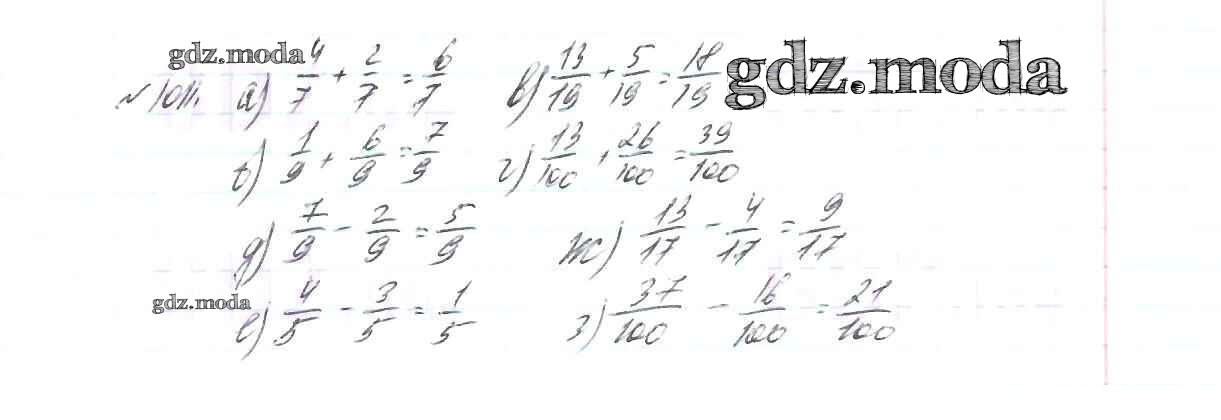 gdz.moda
№ 1011. а) 4/7 + 2/7 = 6/7 в) 13/19 + 5/19 = 18/19 gdz.moda
б) 1/9 + 6/9 = 7/9 г) 13/100 + 26/100 = 39/100
д) 7/9 - 2/9 = 5/9 ж) 13/17 - 4/17 = 9/17
gdz.moda
е) 4/5 - 3/5 = 1/5 з) 37/100 - 16/100 = 21/100